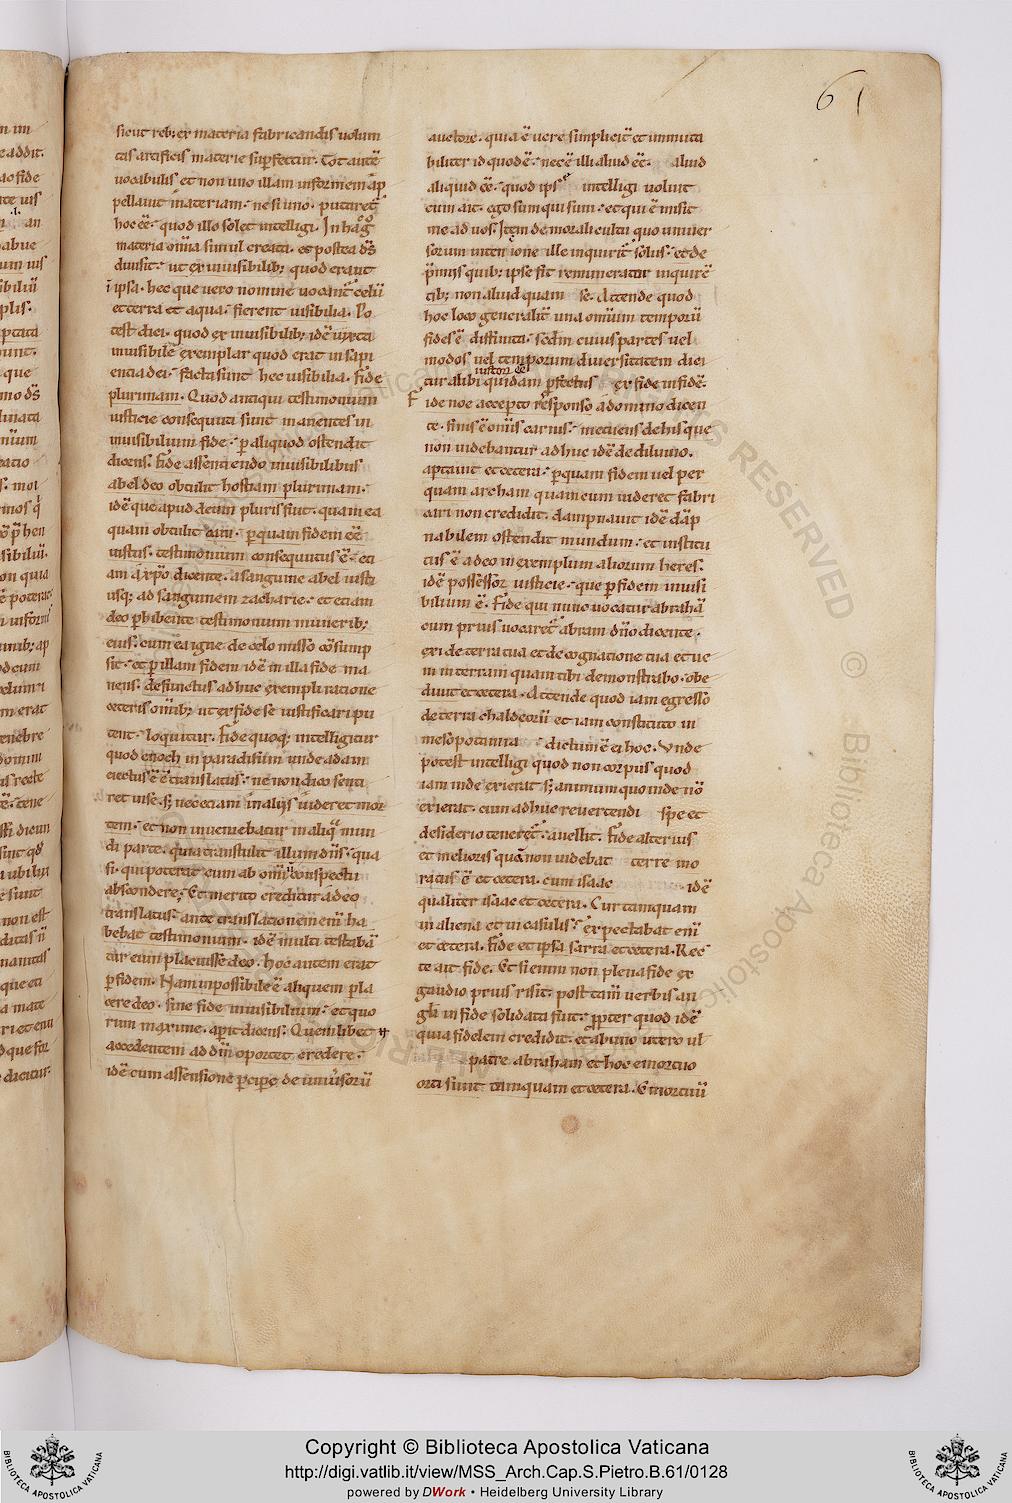 61
sicut reb; ex materia fabricandis uolun
tas artificis materie sup̄fertur. Tot autē
uocabulis et non uno illam informem ap
pellauit materiam. ne si uno. putaret᷑
hoc eē. quod illo solet intelligi. In hac g̊
materia om̄ia simul creata. et postea d̄s
diuisit. ut ex inuisibilib; quod erant
ī ipsa. hec que uero nomine uocant᷑ celū
et terra et aqua. fierent uisibilia. Po
test dici. quod ex inuisibilib; idē iuxta
inuisibile exemplar quod erat in sapi
entia dei. facta sunt hec uisibilia. Fide
plurimam. Quod antiqui testimonium
iusticie consequuti sunt manentes in
inuisibilium fide. p aliquod ostendit
dicens. Fide assentiendo inuisibilibus
abel deo obtulit hostiam plurimam.
idē que apud deum pluris fiut. quam ea
quam obtulit cain. p quam fidem eē
iustus. testimonium consequutus ē. eti
am a xp̄o dicente. a sanguine abel iusti
usq; ad sanguinem zacharie. et etiam
deo phibente testimonium munerib;
eius. cum ea igne de celo misso cōsump
sit. et p illam fidem idē in illa fide ma
nens. defunctus adhuc exempli ratione
ceteris omib; ut ex fide se iustificari pu
tent. loquitur. Fide quoq; intelligitur
quod enoch in paradisum unde adam
eiectus ē translatus. ne non dico senti
ret in se. s; nec etiam in alijs uideret mor
tem. et non inueniebatur in aliq̄ mun
di parte. quia transtulit illum dn̄s. qua
si. qui poterat eum ab om̄i conspectu
abscondere. Et merito creditur a deo
translatus. ante translationem enī ha
bebat testimonium. idē multi testabā
tur eum placuisse deo. hoc autem erat
p fidem. Nam impossibile ē aliquem pla
cere deo. sine fide inuisibilium. et quo
rum maxime. aperit dicens. Quemlibet
accedentem ad dn̄m oportet credere.
idē cum assensione pcipe de uniu᷑sorū
auctore. quia ē uere simplicit᷑ et immuta
biliter id quod ē. nec ē illi aliud eē. aliud
aliquid eē. quod ipse intelligi uoluit
cum ait. ego sum qui sum. et qui ē misit
me ad uos. Item de morali cultu quo uniuer
sorum intentione ille inquirit᷑ solus. et de
p̄mijs quib; ipse sit remunerator inquirē
tib; non aliud quam se. Attende quod
hoc loco generalit᷑ una omīum temporū
fides ē diffinita. sed in cuius partes uel
modos uel temporum diuersitatem dici
iustor eē
tur alibi quidam p̄fectus ex fide in fidē.
F ide noe accepto responso a domino dicen
te. finis ē om̄is carnis. metuens de his que
non uidebantur adhuc idē de diluuio.
aptauit et cetera. p quam fidem uel per
quam archam quam cum uideret fabri
cari non credidit. dampnauit idē dāp
nabilem ostendit mundum. et institu
tus ē a deo in exemplum aliorum heres.
idē possessor iusticie. que p fidem inuisi
bilium ē. Fide qui nunc uocatur abrahā
cum prius uocaret᷑ abram dn̄o dicente.
exi de terra tua et de cognatione tua et ue
ni in terram quam tibi demonstrabo. obe
diuit et cetera. Attende quod iam egresso
de terra chaldeorū et iam constituto in
mesopotamia dictum ē ei hoc. Vnde
potest intelligi quod non corpus quod
iam inde exierat s; animum quo inde nō
exierat. cum adhuc reuertendi spe et
desiderio teneret᷑. auellit. Fide alterius
et melioris quā non uidebat terre mo
ratus ē et cetera. cum isaac idē
qualiter isaac et cetera. Cur tamquam
in aliena et in casulis. expectabat enī
et cetera. Fide et ipsa sarra et cetera. Rec
te ait fide. Et si enim non plena fide ex
gaudio prius risit. post tam̄ uerbis an
gli in fide solidata fuit. p̄pter quod idē
quia fidelem credidit. et ab uno utero ul
patre abraham et hoc emortuo
orti sunt tamquam et cetera. Emortuū
Copyright © Biblioteca Apostolica Vaticana
http://digi.vatlib.it/view/MSS_Arch.Cap.S.Pietro.B.61/0128
powered by DWork • Heidelberg University Library